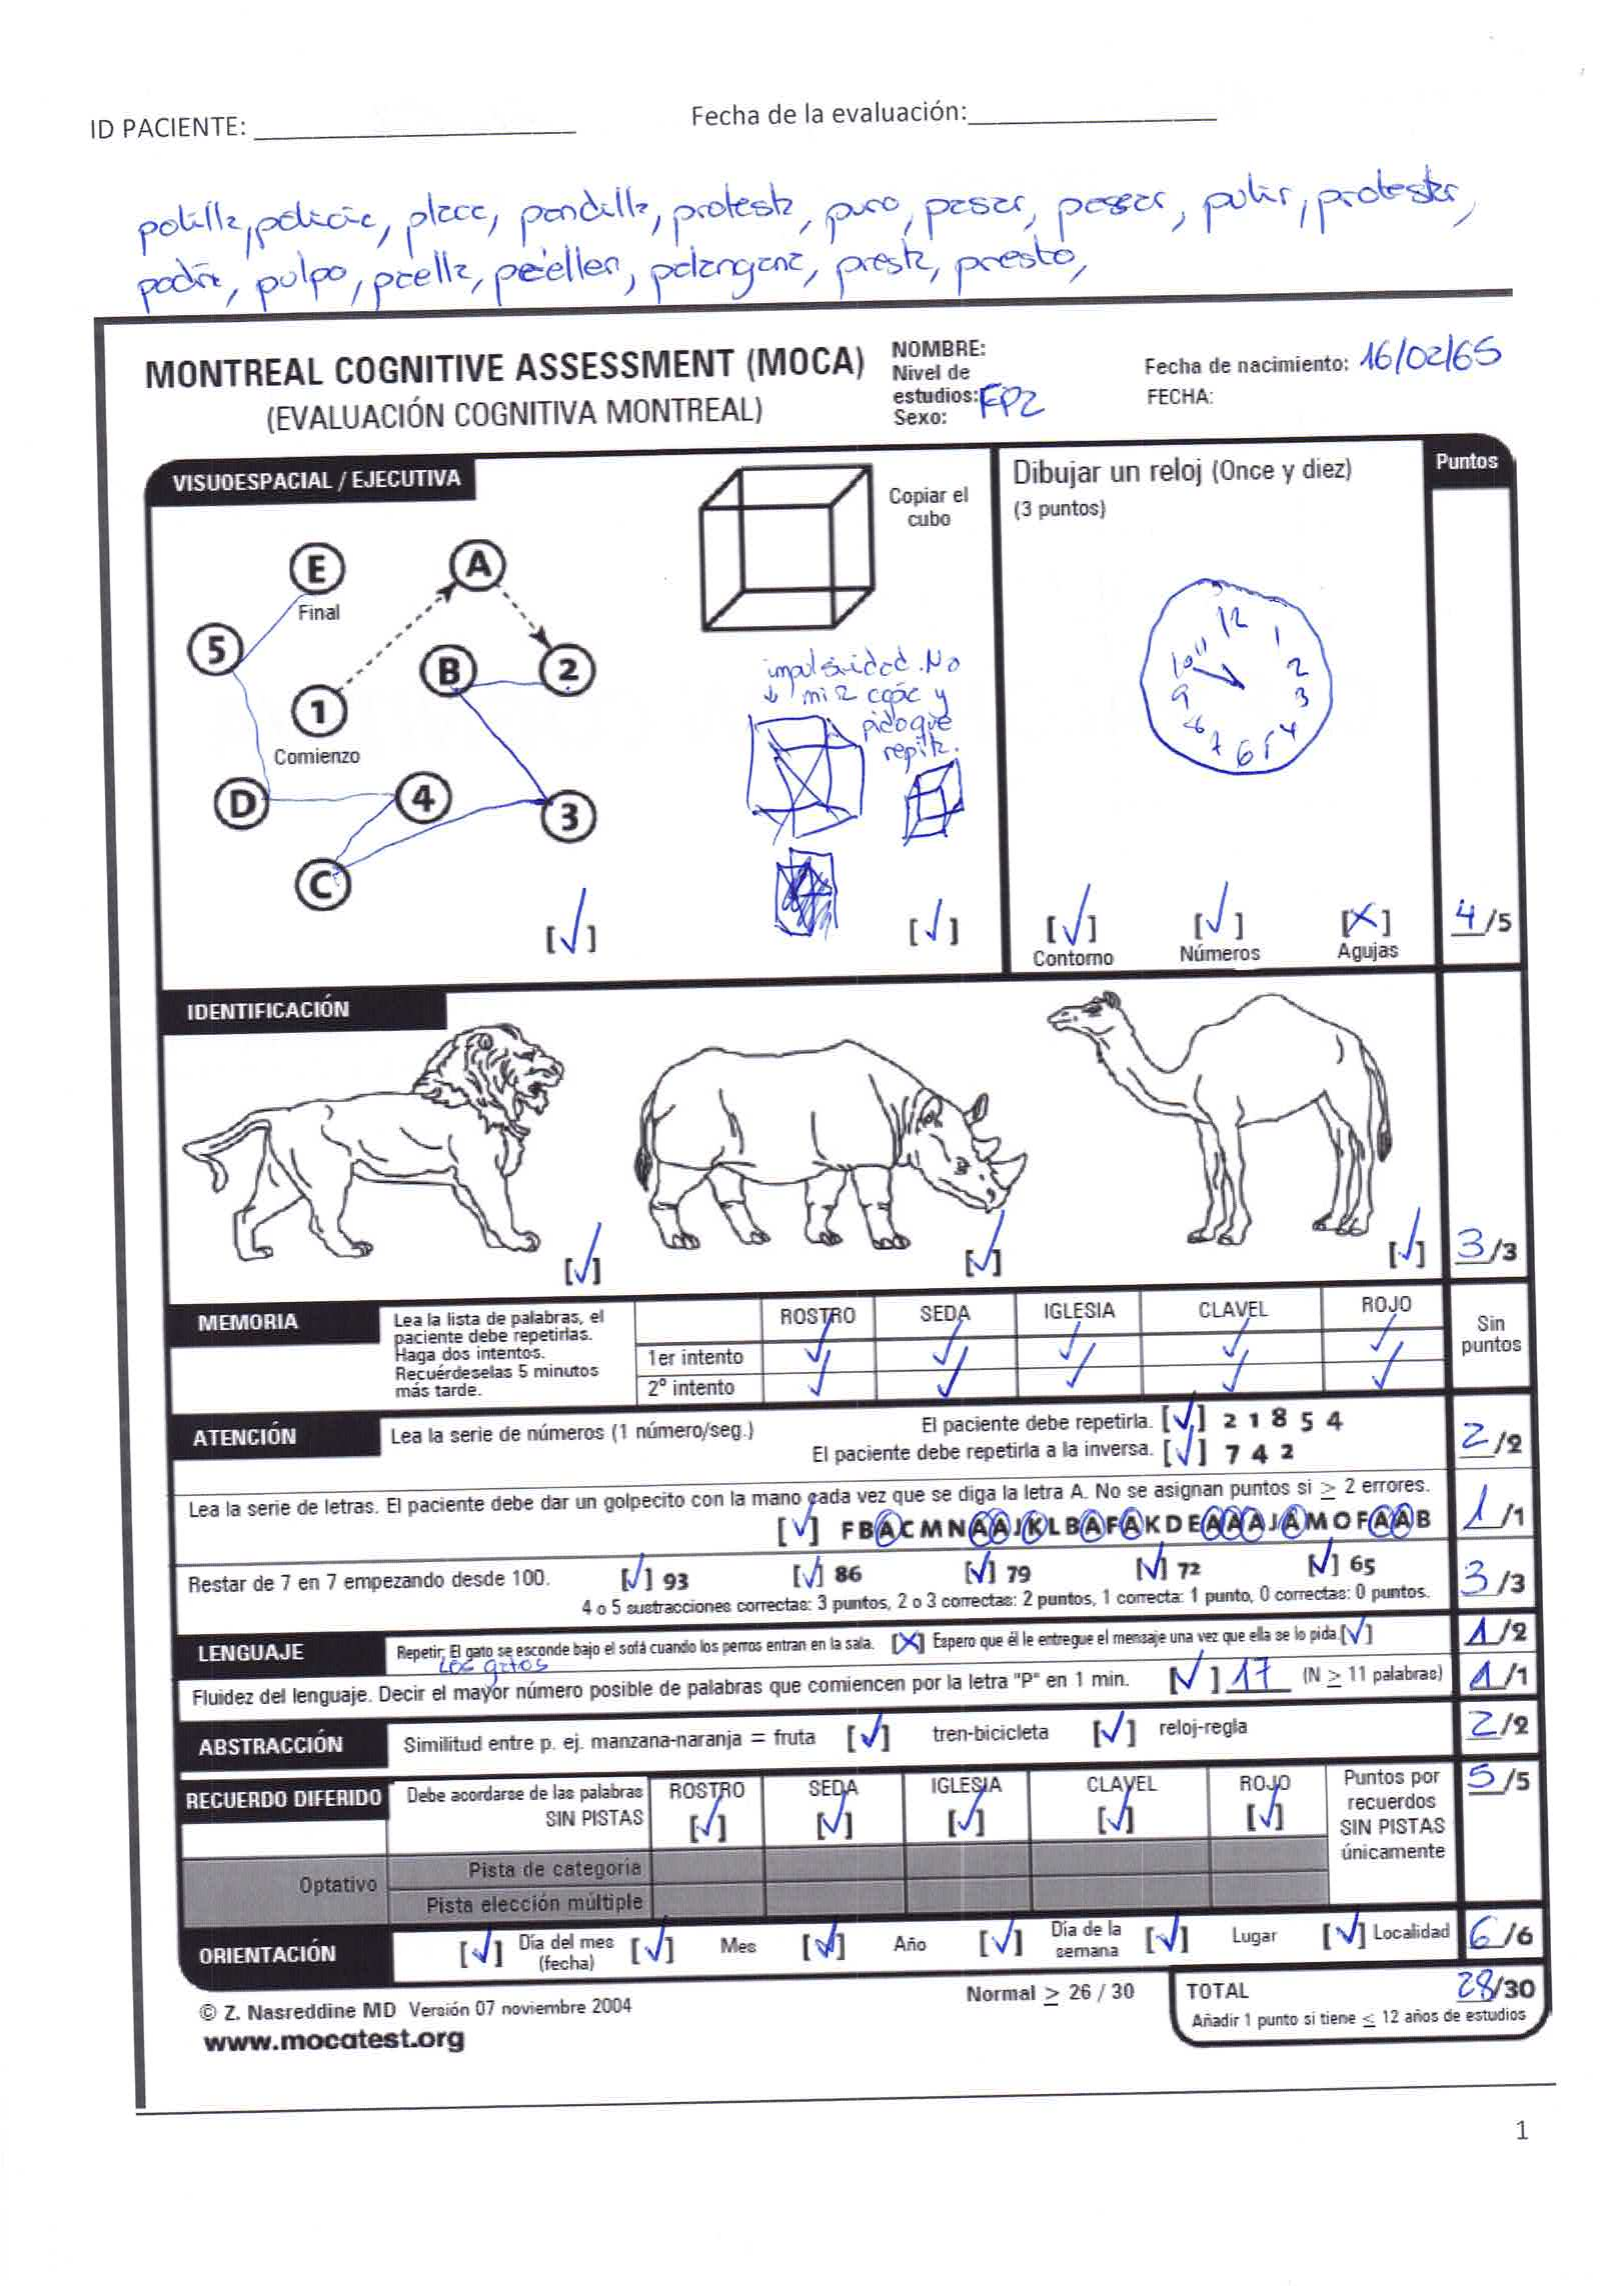 ID PACIENTE: ____________ Fecha de la evaluación:____________
polilla, policía, placa, pandilla, protesta, puro, pasar, pescar, pulir, protestar,
padre, pulpo, paella, paellera, palangana, presta, presto,
MONTREAL COGNITIVE ASSESSMENT (MOCA)
(EVALUACIÓN COGNITIVA MONTREAL)
NOMBRE:
Nivel de
estudios: FP2
Sexo:
Fecha de nacimiento: 16/02/65
FECHA:
VISUOESPACIAL / EJECUTIVA
Copiar el
cubo
Dibujar un reloj (Once y diez)
(3 puntos)
Puntos
E
Final
A
5
B
2
1
Comienzo
D
4
3
C
impulsividad. No
↓ mira copia y
pido que
repita.
12
11
1
10
2
9
3
8
4
7
6
5
[✓]
[✓]
[✓]
Contorno
[✓]
Números
[X]
Agujas
4/5
IDENTIFICACIÓN
[✓] [✓] [✓] 3/3
MEMORIA
Lea la lista de palabras, el
paciente debe repetirlas.
Haga dos intentos.
Recuérdeselas 5 minutos
más tarde.
ROSTRO SEDA IGLESIA CLAVEL ROJO
1er intento ✓ ✓ ✓ ✓ ✓
2º intento ✓ ✓ ✓ ✓ ✓
Sin
puntos
ATENCIÓN
Lea la serie de números (1 número/seg.) El paciente debe repetirla. [✓] 2 1 8 5 4
El paciente debe repetirla a la inversa. [✓] 7 4 2
2/2
Lea la serie de letras. El paciente debe dar un golpecito con la mano cada vez que se diga la letra A. No se asignan puntos si ≥ 2 errores.
[✓] F B A C M N A A J K L B A F A K D E A A A J A M O F A A B 1/1
Restar de 7 en 7 empezando desde 100. [✓] 93 [✓] 86 [✓] 79 [✓] 72 [✓] 65
4 o 5 sustracciones correctas: 3 puntos, 2 o 3 correctas: 2 puntos, 1 correcta: 1 punto, 0 correctas: 0 puntos.
3/3
LENGUAJE
Repetir: El gato se esconde bajo el sofá cuando los perros entran en la sala. [X] Espero que él le entregue el mensaje una vez que ella se lo pida.[✓] 1/2
Los gatos
Fluidez del lenguaje. Decir el mayor número posible de palabras que comiencen por la letra "P" en 1 min. [✓] 17 (N ≥ 11 palabras) 1/1
ABSTRACCIÓN
Similitud entre p. ej. manzana-naranja = fruta [✓] tren-bicicleta [✓] reloj-regla 2/2
RECUERDO DIFERIDO
Debe acordarse de las palabras
SIN PISTAS
ROSTRO SEDA IGLESIA CLAVEL ROJO
[✓] [✓] [✓] [✓] [✓]
Puntos por
recuerdos
SIN PISTAS
únicamente
5/5
Optativo
Pista de categoría
Pista elección múltiple
ORIENTACIÓN
[✓] Día del mes
(fecha)
[✓] Mes [✓] Año [✓] Día de la
semana
[✓] Lugar [✓] Localidad 6/6
© Z. Nasreddine MD Versión 07 noviembre 2004
www.mocatest.org
Normal ≥ 26 / 30
TOTAL 28/30
Añadir 1 punto si tiene ≤ 12 años de estudios
1